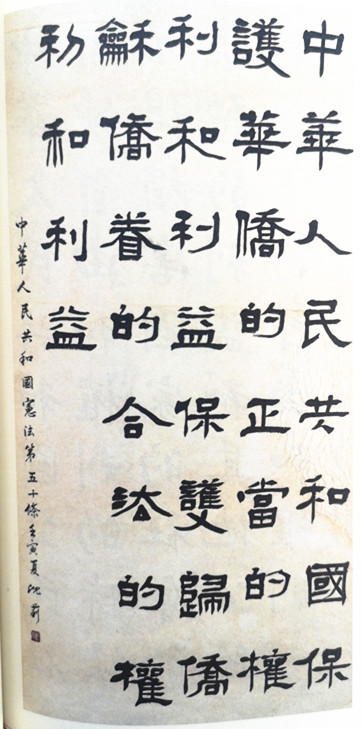 中華人民共和國保
護華僑的正當的權
利和利益保護歸僑
龢僑眷的合法的權
利和利益
中華人民共和國憲法第五十條壬寅夏沈